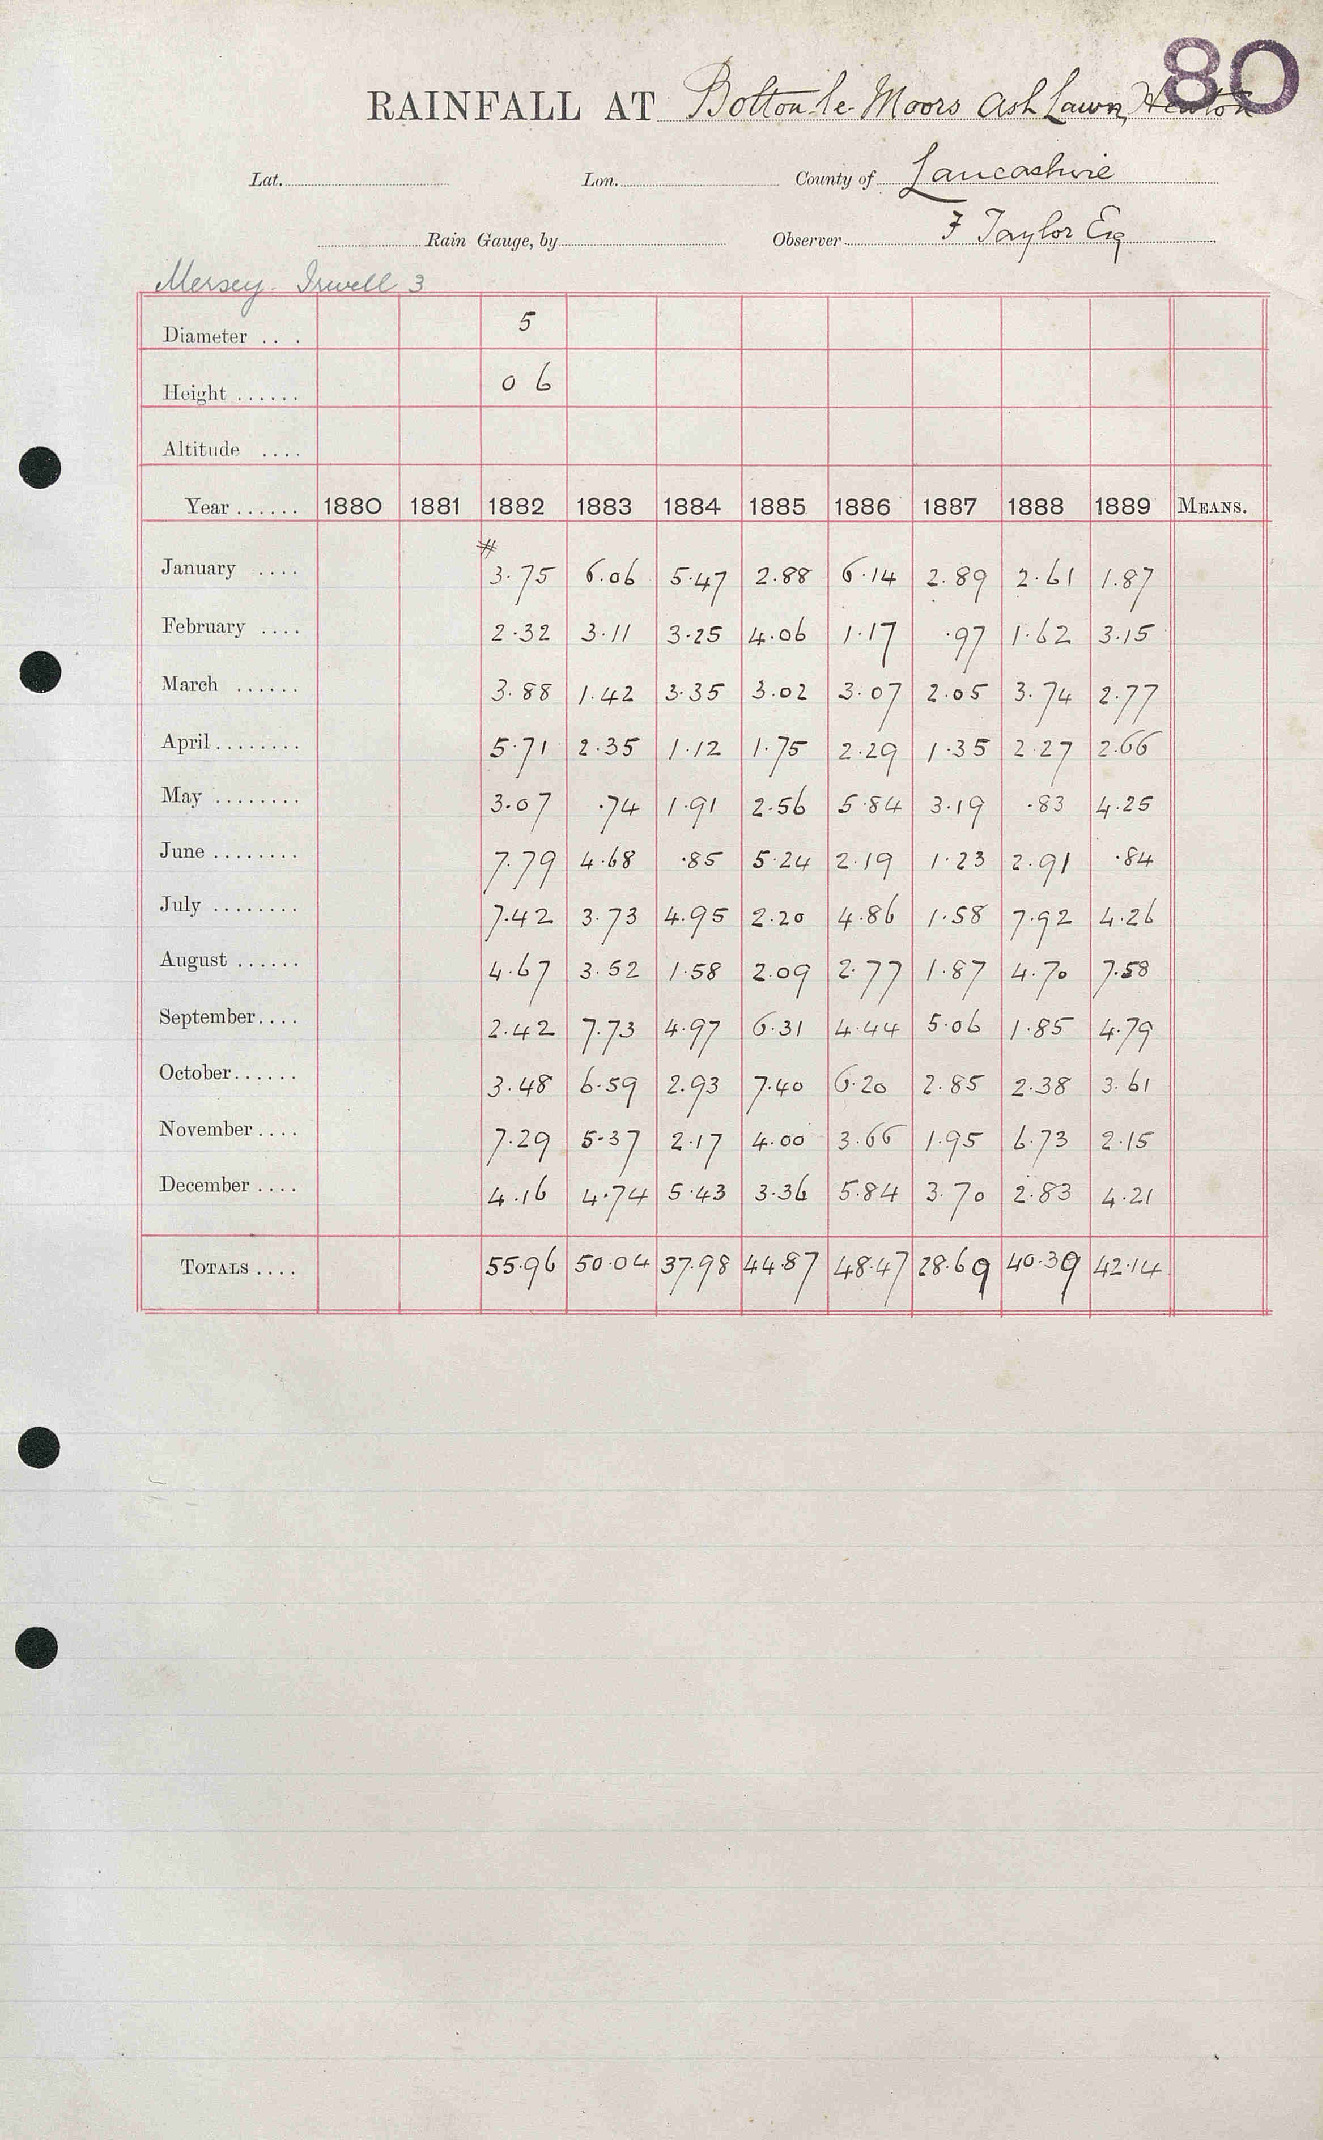 80
RAINFALL AT Bolton le Moors Ash Lawn, Heaton
Lat. Lon. County of Lancashire
Rain Gauge, by Observer F Taylor Esq
Mersey. Irwell 3
Diameter ... 5
Height ...... 0 6
Altitude ....
Year ...... 1880 1881 1882 1883 1884 1885 1886 1887 1888 1889 MEANS.
#
January .... 3.75 6.06 5.47 2.88 6.14 2.89 2.61 1.87
February .... 2.32 3.11 3.25 4.06 1.17 .97 1.62 3.15
March ...... 3.88 1.42 3.35 3.02 3.07 2.05 3.74 2.77
April........ 5.71 2.35 1.12 1.75 2.29 1.35 2.27 2.66
May ........ 3.07 .74 1.91 2.56 5.84 3.19 .83 4.25
June ........ 7.79 4.68 .85 5.24 2.19 1.23 2.91 .84
July ........ 7.42 3.73 4.95 2.20 4.86 1.58 7.92 4.26
August ...... 4.67 3.52 1.58 2.09 2.77 1.87 4.70 7.58
September.... 2.42 7.73 4.97 6.31 4.44 5.06 1.85 4.79
October...... 3.48 6.59 2.93 7.40 6.20 2.85 2.38 3.61
November.... 7.29 5.37 2.17 4.00 3.66 1.95 6.73 2.15
December .... 4.16 4.74 5.43 3.36 5.84 3.70 2.83 4.21
TOTALS .... 55.96 50.04 37.98 44.87 48.47 28.69 40.39 42.14